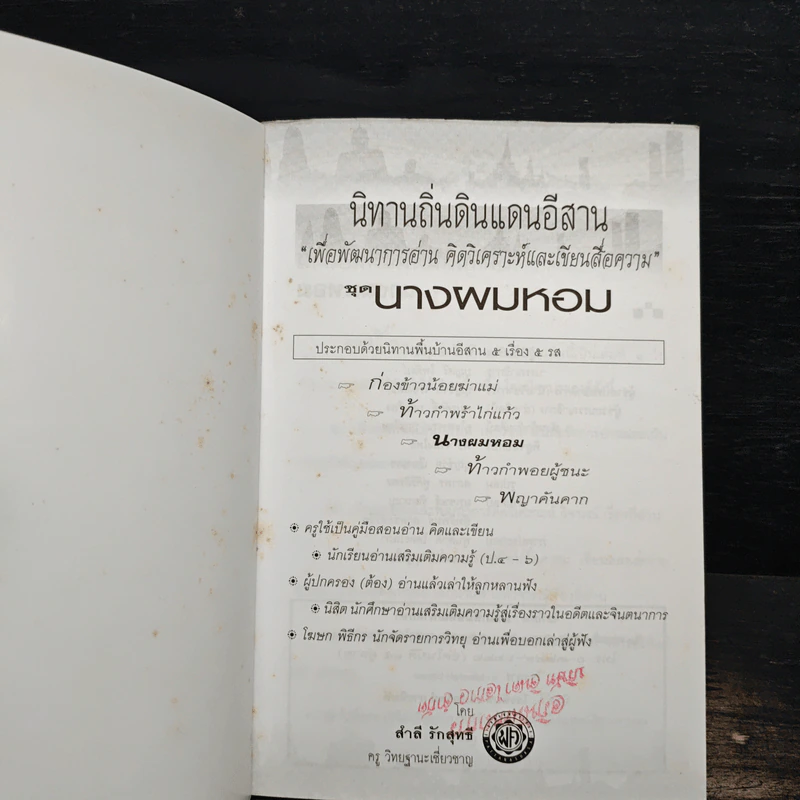 นิทานถิ่นดินแดนอีสาน
"เพื่อพัฒนาการอ่าน คิดวิเคราะห์และเขียนสื่อความ"
ชุด นางผมหอม
ประกอบด้วยนิทานพื้นบ้านอีสาน ๕ เรื่อง ๕ รส
ก่องข้าวน้อยฆ่าแม่
ท้าวกำพร้าไก่แก้ว
นางผมหอม
ท้าวกำพอยผู้ชนะ
พญาคันคาก
ครูใช้เป็นคู่มือสอนอ่าน คิดและเขียน
นักเรียนอ่านเสริมเติมความรู้ (ป.๔ - ๖)
ผู้ปกครอง (ต้อง) อ่านแล้วเล่าให้ลูกหลานฟัง
นิสิต นักศึกษาอ่านเสริมเติมความรู้สู่เรื่องราวในอดีตและจินตนาการ
โฆษก พิธีกร นักจัดรายการวิทยุ อ่านเพื่อบอกเล่าสู่ผู้ฟัง
โดย
สำลี รักสุทธิ
ครู วิทยฐานะเชี่ยวชาญ